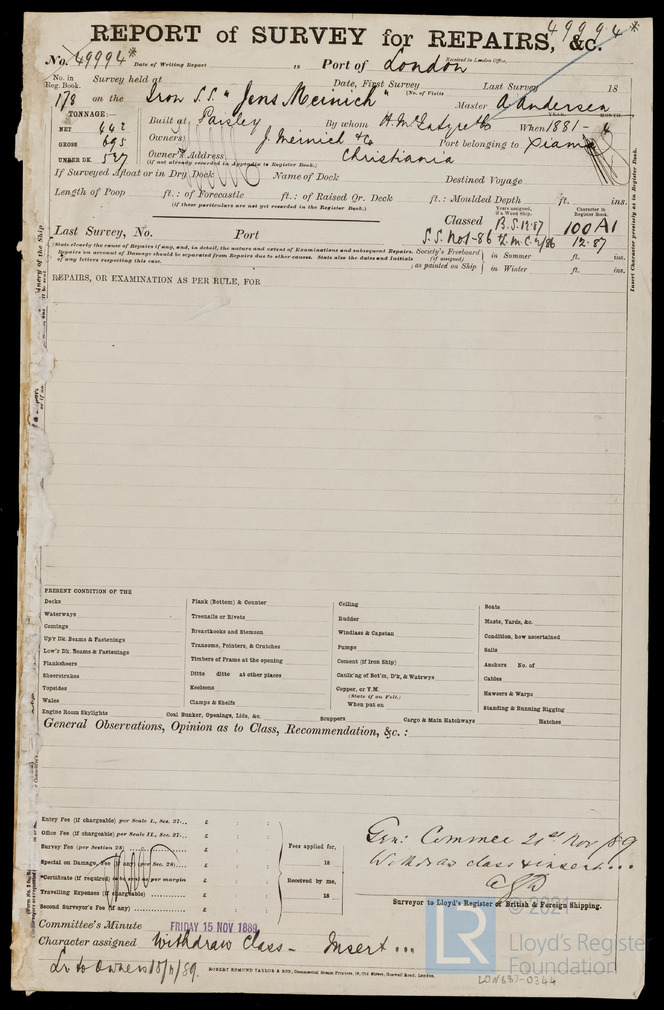 49994*
REPORT of SURVEY for REPAIRS, &c.
No. 49994* Date of Writing Report 18 Port of London Received in London Office,
No. in Reg. Book. Survey held at Date, First Survey Last Survey 18
(No. of Visits
178 on the Iron S.S. "Jens Meinich" Master A Andersen
TONNAGE:—
YEAR. MONTH.
NET 442 Built at Paisley By whom When 1881 - 4
GROSS 695 Owners J. Meinich & Co Port belonging to Xiania
UNDER DK. 527 Owner's Address Christiania
(if not already recorded in Appendix to Register Book.)
If Surveyed Afloat or in Dry Dock Name of Dock Destined Voyage
Length of Poop ft.: of Forecastle ft.: of Raised Qr. Deck ft.: Moulded Depth ft. ins.
(if these particulars are not yet recorded in the Register Book.)
Years assigned, if a Wood Ship.
Character in Register Book.
Classed B.S. 12.87 100 A1
Last Survey, No. Port S.S. No 1-86 L.M.C. 4/86 12.87
(State clearly the cause of Repairs if any, and, in detail, the nature and extent of Examinations and subsequent Repairs.
Repairs on account of Damage should be separated from Repairs due to other causes. State also the dates and Initials
of any letters respecting this case.
Society's Freeboard (if assigned) as painted on Ship in Summer ft. ins.
in Winter ft. ins.
Insert Character precisely as in Register Book.
REPAIRS, OR EXAMINATION AS PER RULE, FOR
PRESENT CONDITION OF THE
Decks
Waterways
Comings
Up'r Dk. Beams & Fastenings
Low'r Dk. Beams & Fastenings
Planksheers
Sheerstrakes
Topsides
Wales
Engine Room Skylights
Plank (Bottom) & Counter
Treenails or Rivets
Breasthooks and Stemson
Transoms, Pointers, & Crutches
Timbers of Frame at the opening
Ditto ditto at other places
Keelsons
Clamps & Shelfs
Coal Bunker, Openings, Lids, &c.
Ceiling
Rudder
Windlass & Capstan
Pumps
Cement (if Iron Ship)
Caulk'ng of Bot'm, D'k, & Watrwys
Copper, or Y.M.
(State if on Felt.)
When put on
Scuppers
Cargo & Main Hatchways
Boats
Masts, Yards, &c.
Condition, how ascertained
Sails
Anchors No. of
Cables
Hawsers & Warps
Standing & Running Rigging
Hatches
General Observations, Opinion as to Class, Recommendation, &c. :
Entry Fee (if chargeable) per Scale I., Sec. 27... £ : :
Office Fee (if chargeable) per Scale II., Sec. 27... £ : :
Survey Fee (per Section 28) £ : :
Special on Damage, Fee (if any) (per Sec. 28)... £ : :
*Certificate (if required) to be sent as per margin £ : :
Travelling Expenses (if chargeable) £ : :
Second Surveyor's Fee (if any) £ : :
Fees applied for,
18
Received by me,
18
Gen: Commee 21st Nov /89
Withdraw class & insert ...
Surveyor to Lloyd's Register of British & Foreign Shipping.
Committee's Minute FRIDAY 15 NOV 1889
Character assigned Withdraw Class - Insert ...
Lr to Owners 15/11/89.
ROBERT EDMUND TAYLOR & SON, Commercial Steam Printers, 19, Old Street, Goswell Road, London.
© 2021
LR
Lloyd's Register
Foundation
LON637-0344